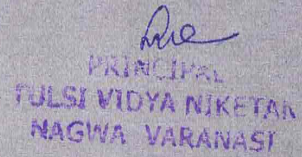 PRINCIPAL
TULSI VIDYA NIKETAN
NAGWA VARANASI